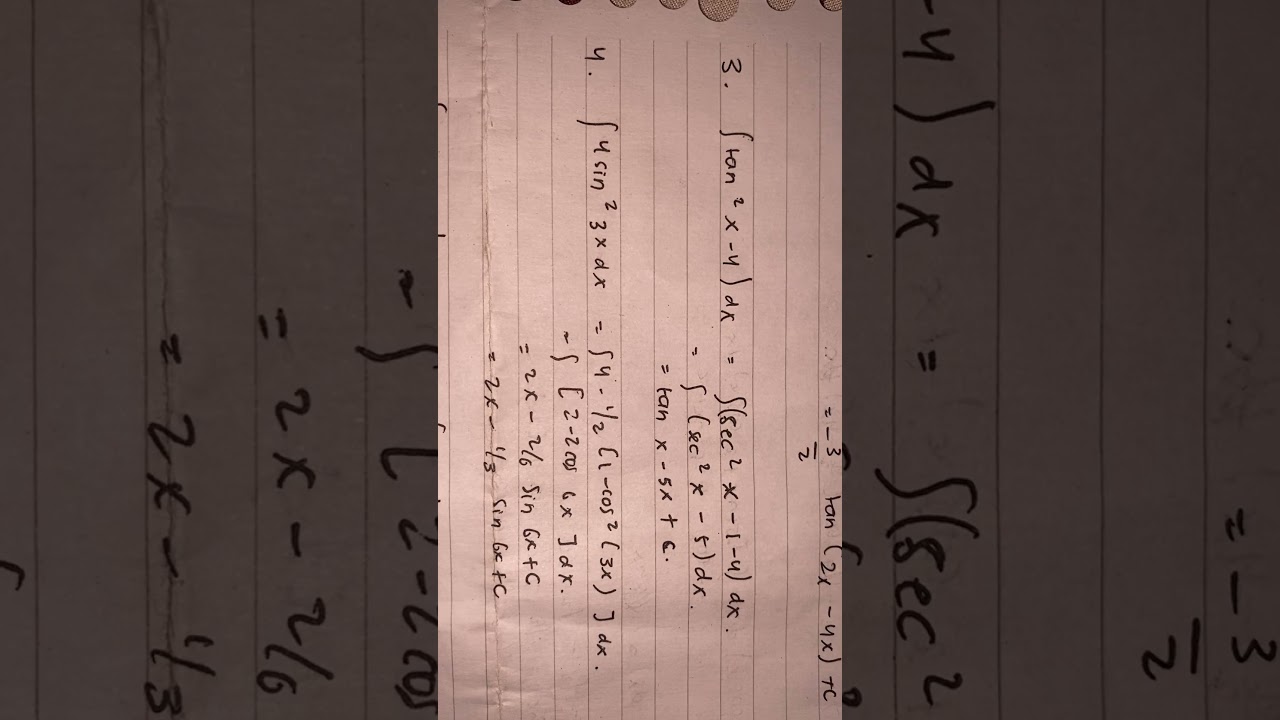 = -3/2 tan (2x - 4x) + c
3. ∫ tan² x - 4) dx = ∫(sec² x - 1 - 4) dx.
= ∫ (sec² x - 5) dx.
= tan x - 5x + c.
4. ∫ 4 sin² 3x dx = ∫ 4 - 1/2 [1 - cos² (3x) ] dx.
~ ∫ [2 - 2cos 6x ] dx.
= 2x - 2/6 sin 6x + c
= 2x - 1/3 sin 6x + c